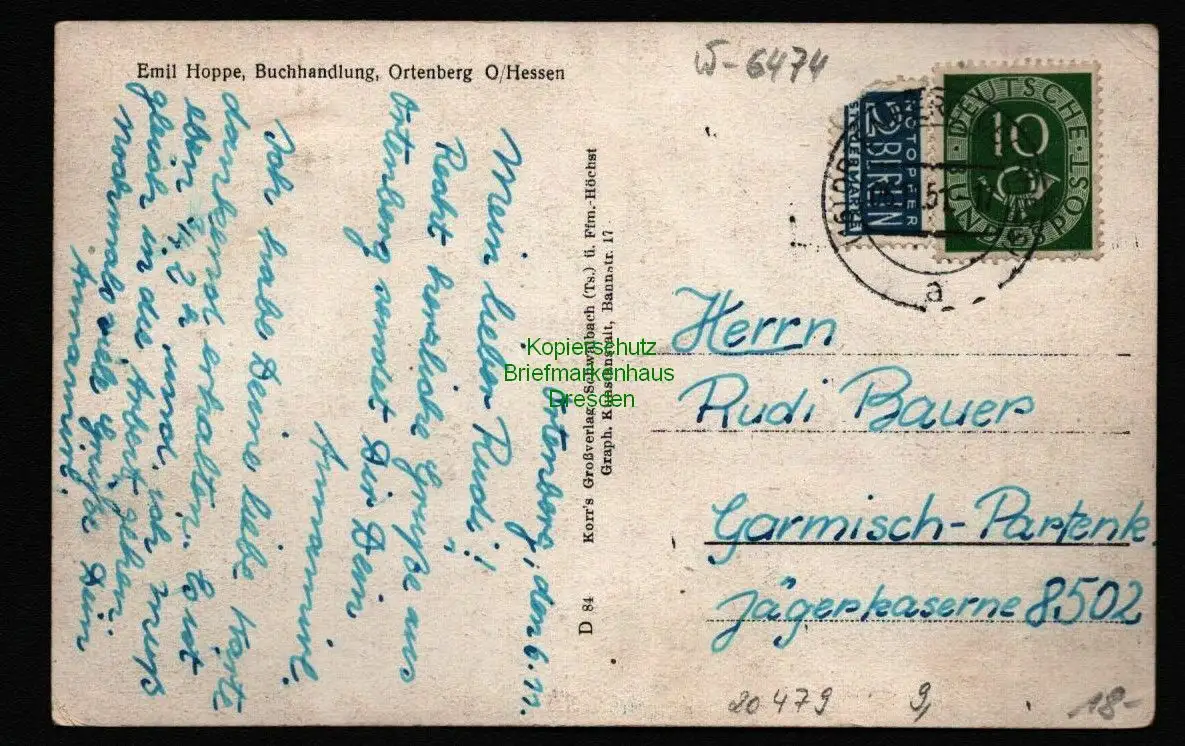 Emil Hoppe, Buchhandlung, Ortenberg O/Hessen
W-6474
Ortenberg, den 6.11.
Mein lieber Rudi!
Recht herzliche Grüße aus
Ortenberg sendet Dir Dein
Annamirl.
Ich habe Deine liebe Karte
dankend erhalten. Es ist
eben ½ 2 h und ich muß
gleich in die Arbeit gehen.
Nochmals viele Grüße Dein
Annamirl.
D 84 Korr's Großverlag, Schwalbach (Ts.) ü. Ffm.-Höchst
Graph. Kunstanstalt, Bannstr. 17
NOTOPFER
2 BERLIN
STEUERMARKE
DEUTSCHE BUNDESPOST
10
51
a
Herrn
Rudi Bauer
Garmisch-Partenk
Jägerkaserne 8502
Kopierschutz
Briefmarkenhaus
Dresden
20479 9, 18-